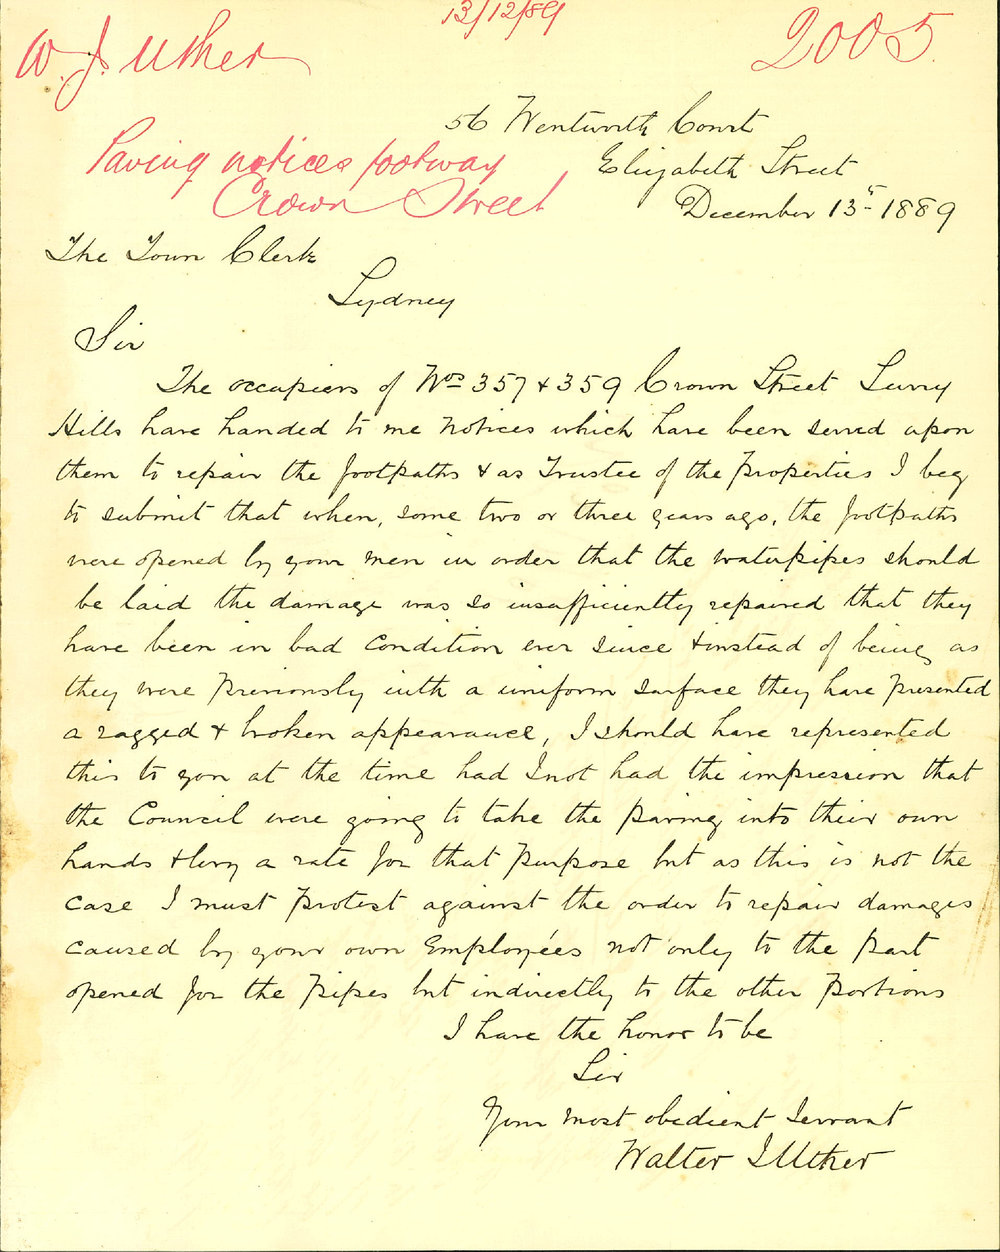 13/12/89
W. J. Uther
2005
Paving notices footway
Crown Street
56 Wentworth Court
Elizabeth Street
December 13th 1889
The Town Clerk
Sydney
Sir
The occupiers of Nos 357 & 359 Crown Street Surry
Hills have handed to me notices which have been served upon
them to repair the footpaths & as Trustee of the Properties I beg
to submit that when, some two or three years ago, the footpaths
were opened by your men in order that the waterpipes should
be laid the damage was so insufficiently repaired that they
have been in bad condition ever since & instead of being as
they were previously with a uniform surface they have presented
a ragged & broken appearance, I should have represented
this to you at the time had I not had the impression that
the Council were going to take the paving into their own
hands & levy a rate for that purpose but as this is not the
case I must protest against the order to repair damages
caused by your own Employées not only to the part
opened for the Pipes but indirectly to the other portions
I have the honor to be
Sir
Your most obedient Servant
Walter J Uther